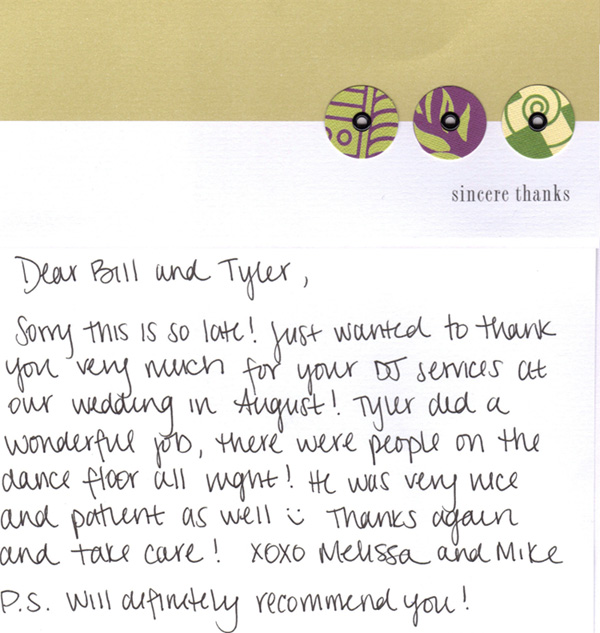 sincere thanks
Dear Bill and Tyler,
Sorry this is so late! Just wanted to thank
you very much for your DJ services at
our wedding in August! Tyler did a
wonderful job, there were people on the
dance floor all night! He was very nice
and patient as well :) Thanks again
and take care! XOXO Melissa and Mike
P.S. Will definetely recommend you!